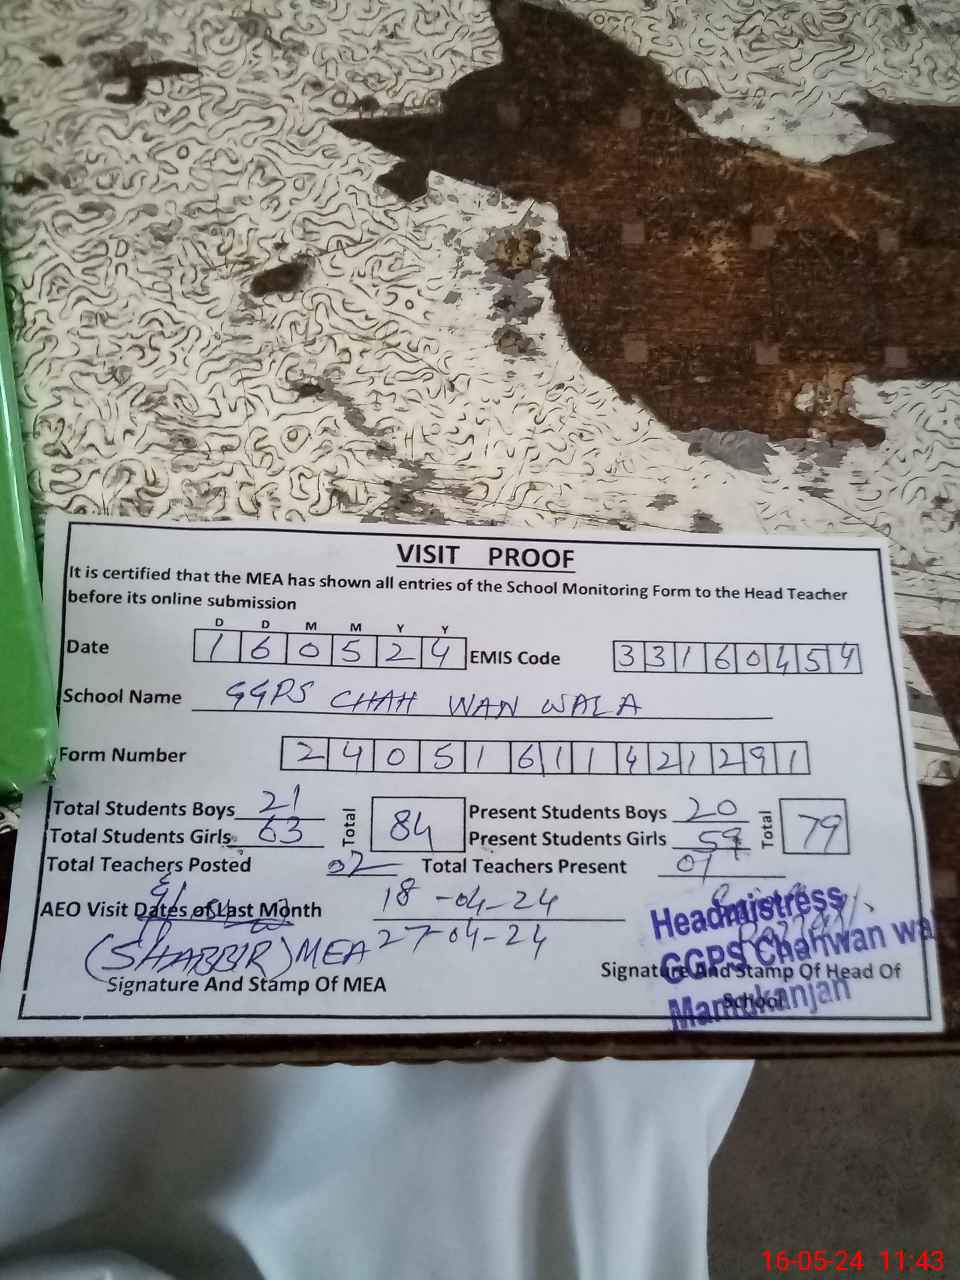 VISIT PROOF
It is certified that the MEA has shown all entries of the School Monitoring Form to the Head Teacher
before its online submission
D D M M Y Y
Date 1 6 0 5 2 4 EMIS Code 3 3 1 6 0 4 5 4
School Name GGPS CHAH WAN WALA
Form Number 2 4 0 5 1 6 1 1 4 2 1 2 9 1
Total Students Boys 21 Total 84 Present Students Boys 20 Total 79
Total Students Girls 63 Present Students Girls 59
Total Teachers Posted 02 Total Teachers Present 01
AEO Visit Dates of Last Month 18-04-24
27-04-24
(SHABBIR) MEA
Signature And Stamp Of MEA
Signature And Stamp Of Head Of
School
Headmistress
GGPS Chahwan wa
Mamukanjan
16-05-24 11:43